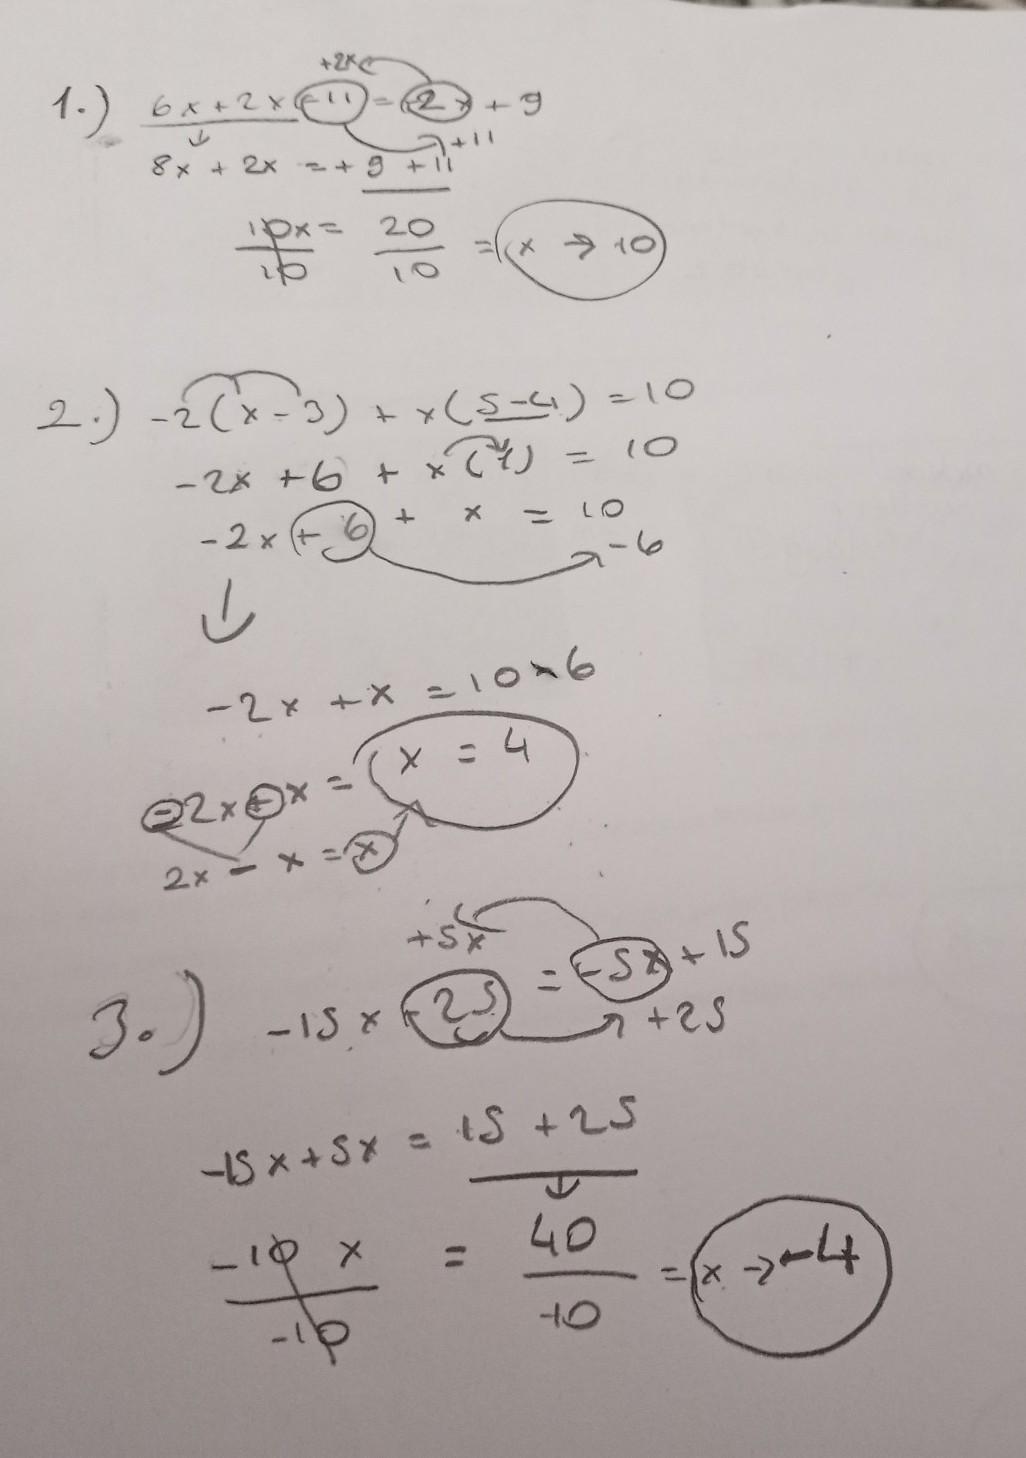 +2x
1.) 6x + 2x - 11 = -2x + 9
+11
8x + 2x = + 9 + 11
10x/10 = 20/10 = x → 10
2.) -2(x - 3) + x(5-4) = 10
-2x + 6 + x(1) = 10
-2x + 6 + x = 10
-6
-2x + x = 10 - 6
-2x + x = x = 4
2x - x = x
+5x
3.) -15x - 25 = -5x + 15
+25
-15x + 5x = 15 + 25
-10x/-10 = 40/-10 = x → -4